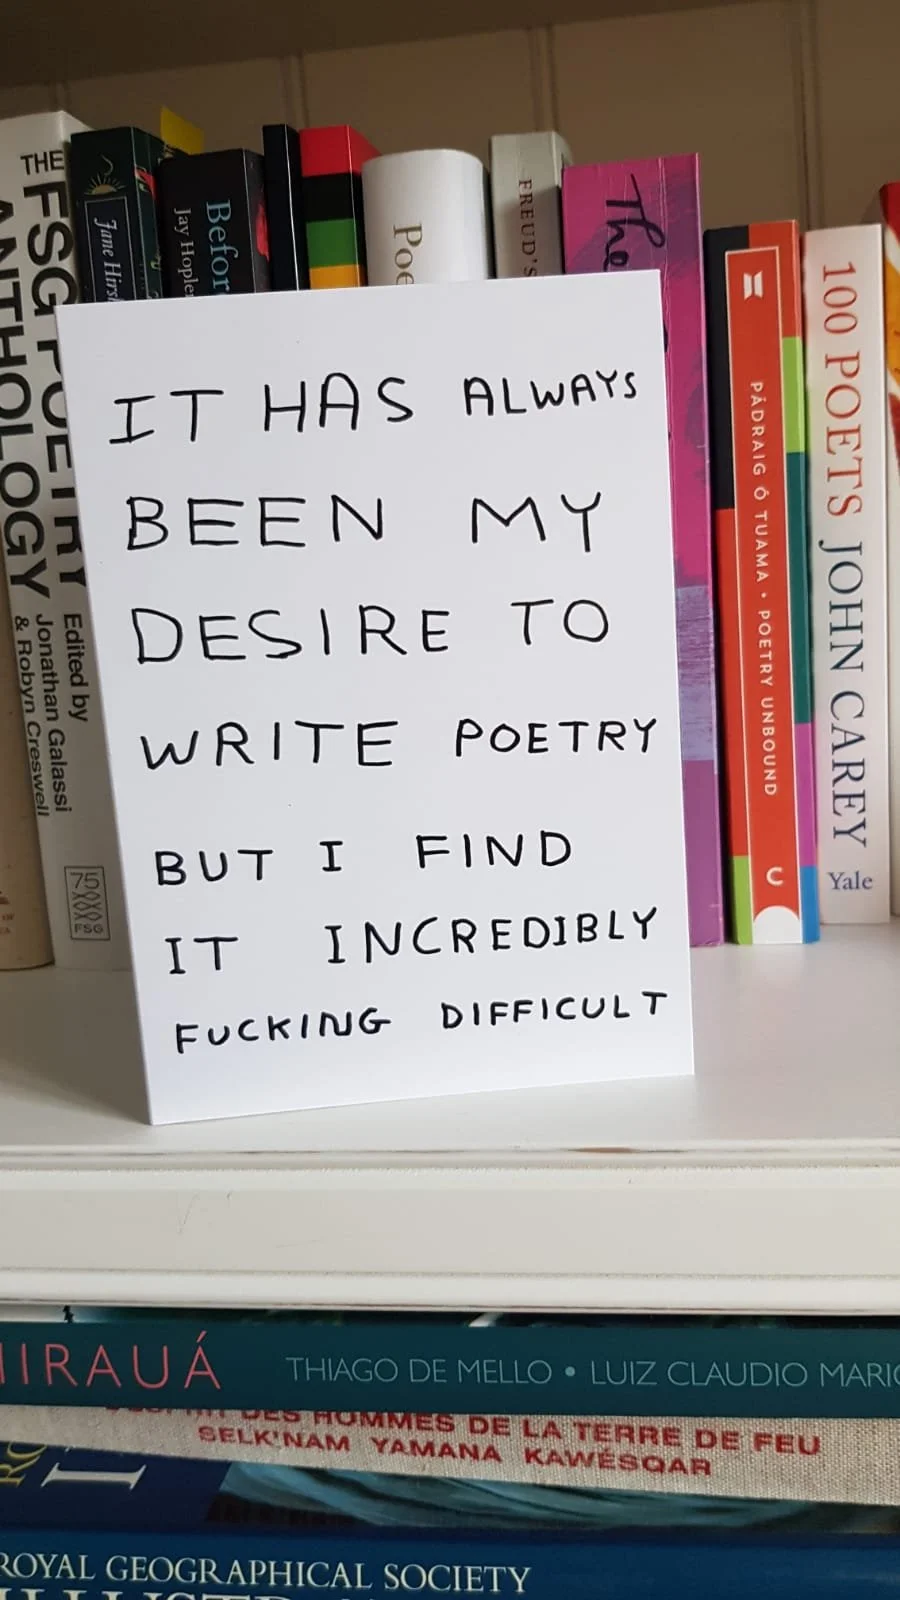 THE FSG POETRY
ANTHOLOGY
Edited by
Jonathan Galassi
& Robyn Creswell
75
FSG
Jane
Jay Hopler
FREUD'S
The
IT HAS ALWAYS
BEEN MY
DESIRE TO
WRITE POETRY
BUT I FIND
IT INCREDIBLY
FUCKING DIFFICULT
PÁDRAIG Ó TUAMA • POETRY UNBOUND
C
100 POETS JOHN CAREY
Yale
IRAUÁ
THIAGO DE MELLO • LUIZ CLAUDIO
DES HOMMES DE LA TERRE DE FEU
SELK'NAM YAMANA KAWÉSQAR
ROYAL GEOGRAPHICAL SOCIETY